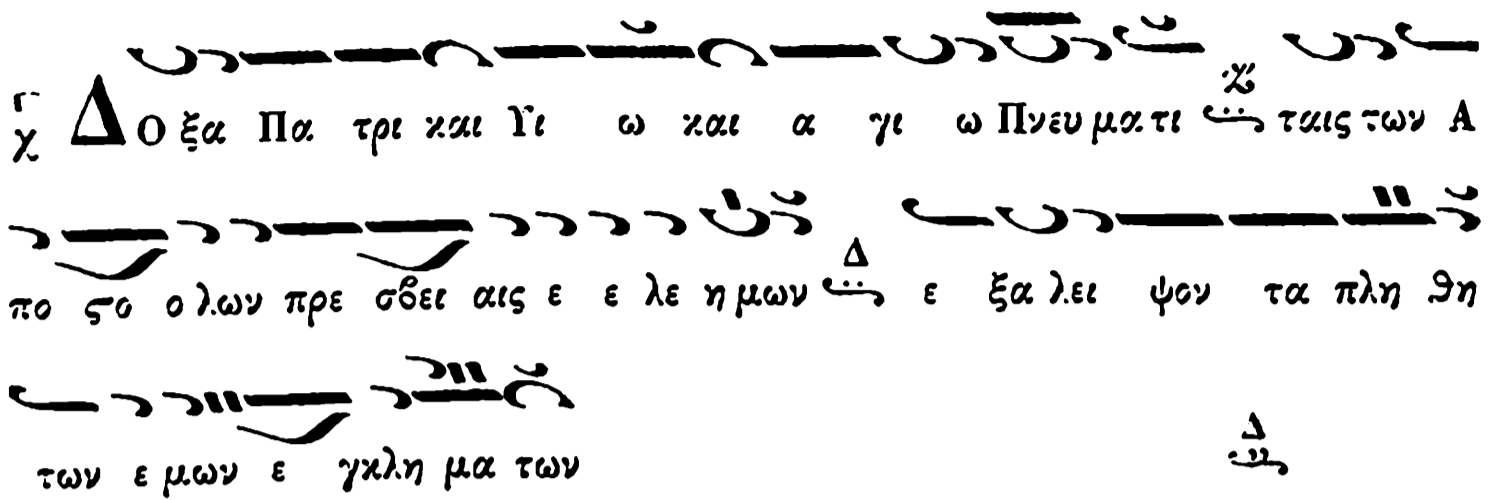 Γ χ Δ ο ξα Πα τρι και Υι ω και α γι ω Πνευ μα τι ταις των Α
πο στο ο λων πρε σβει αις ε ε λε η μων Δ ε ξα λει ψον τα πλη θη
των ε μων ε γκλη μα των Δ